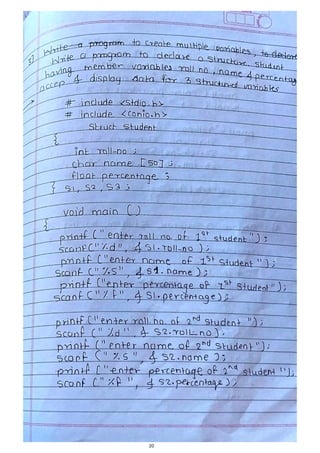 3) Write a program to create multiple variables, to declare
Write a program to declare a structure student
having member variables roll no, name & percentage
accep & display data for 3 structured variables
→
# include <stdio.h>
# include <conio.h>
Struct student
{
int roll-no ;
char name [50] ;
float percentage ;
} S1, S2, S3 ;
void main ( )
{
printf ("enter roll no. of 1st student") ;
scanf ("%d", & S1. roll-no ) ;
printf ("enter name of 1st student") ;
scanf ("%s", & S1. name) ;
printf ("enter percentage of 1st student") ;
scanf ("%f", & S1. percentage) ;
printf ("enter roll no. of 2nd student") ;
scanf ("%d", & S2. roll_no) ;
printf ("enter name of 2nd student") ;
scanf ("%s", & S2. name ) ;
printf ("enter percentage of 2nd student") ;
scanf ("%f", & S2. percentage) ;
20